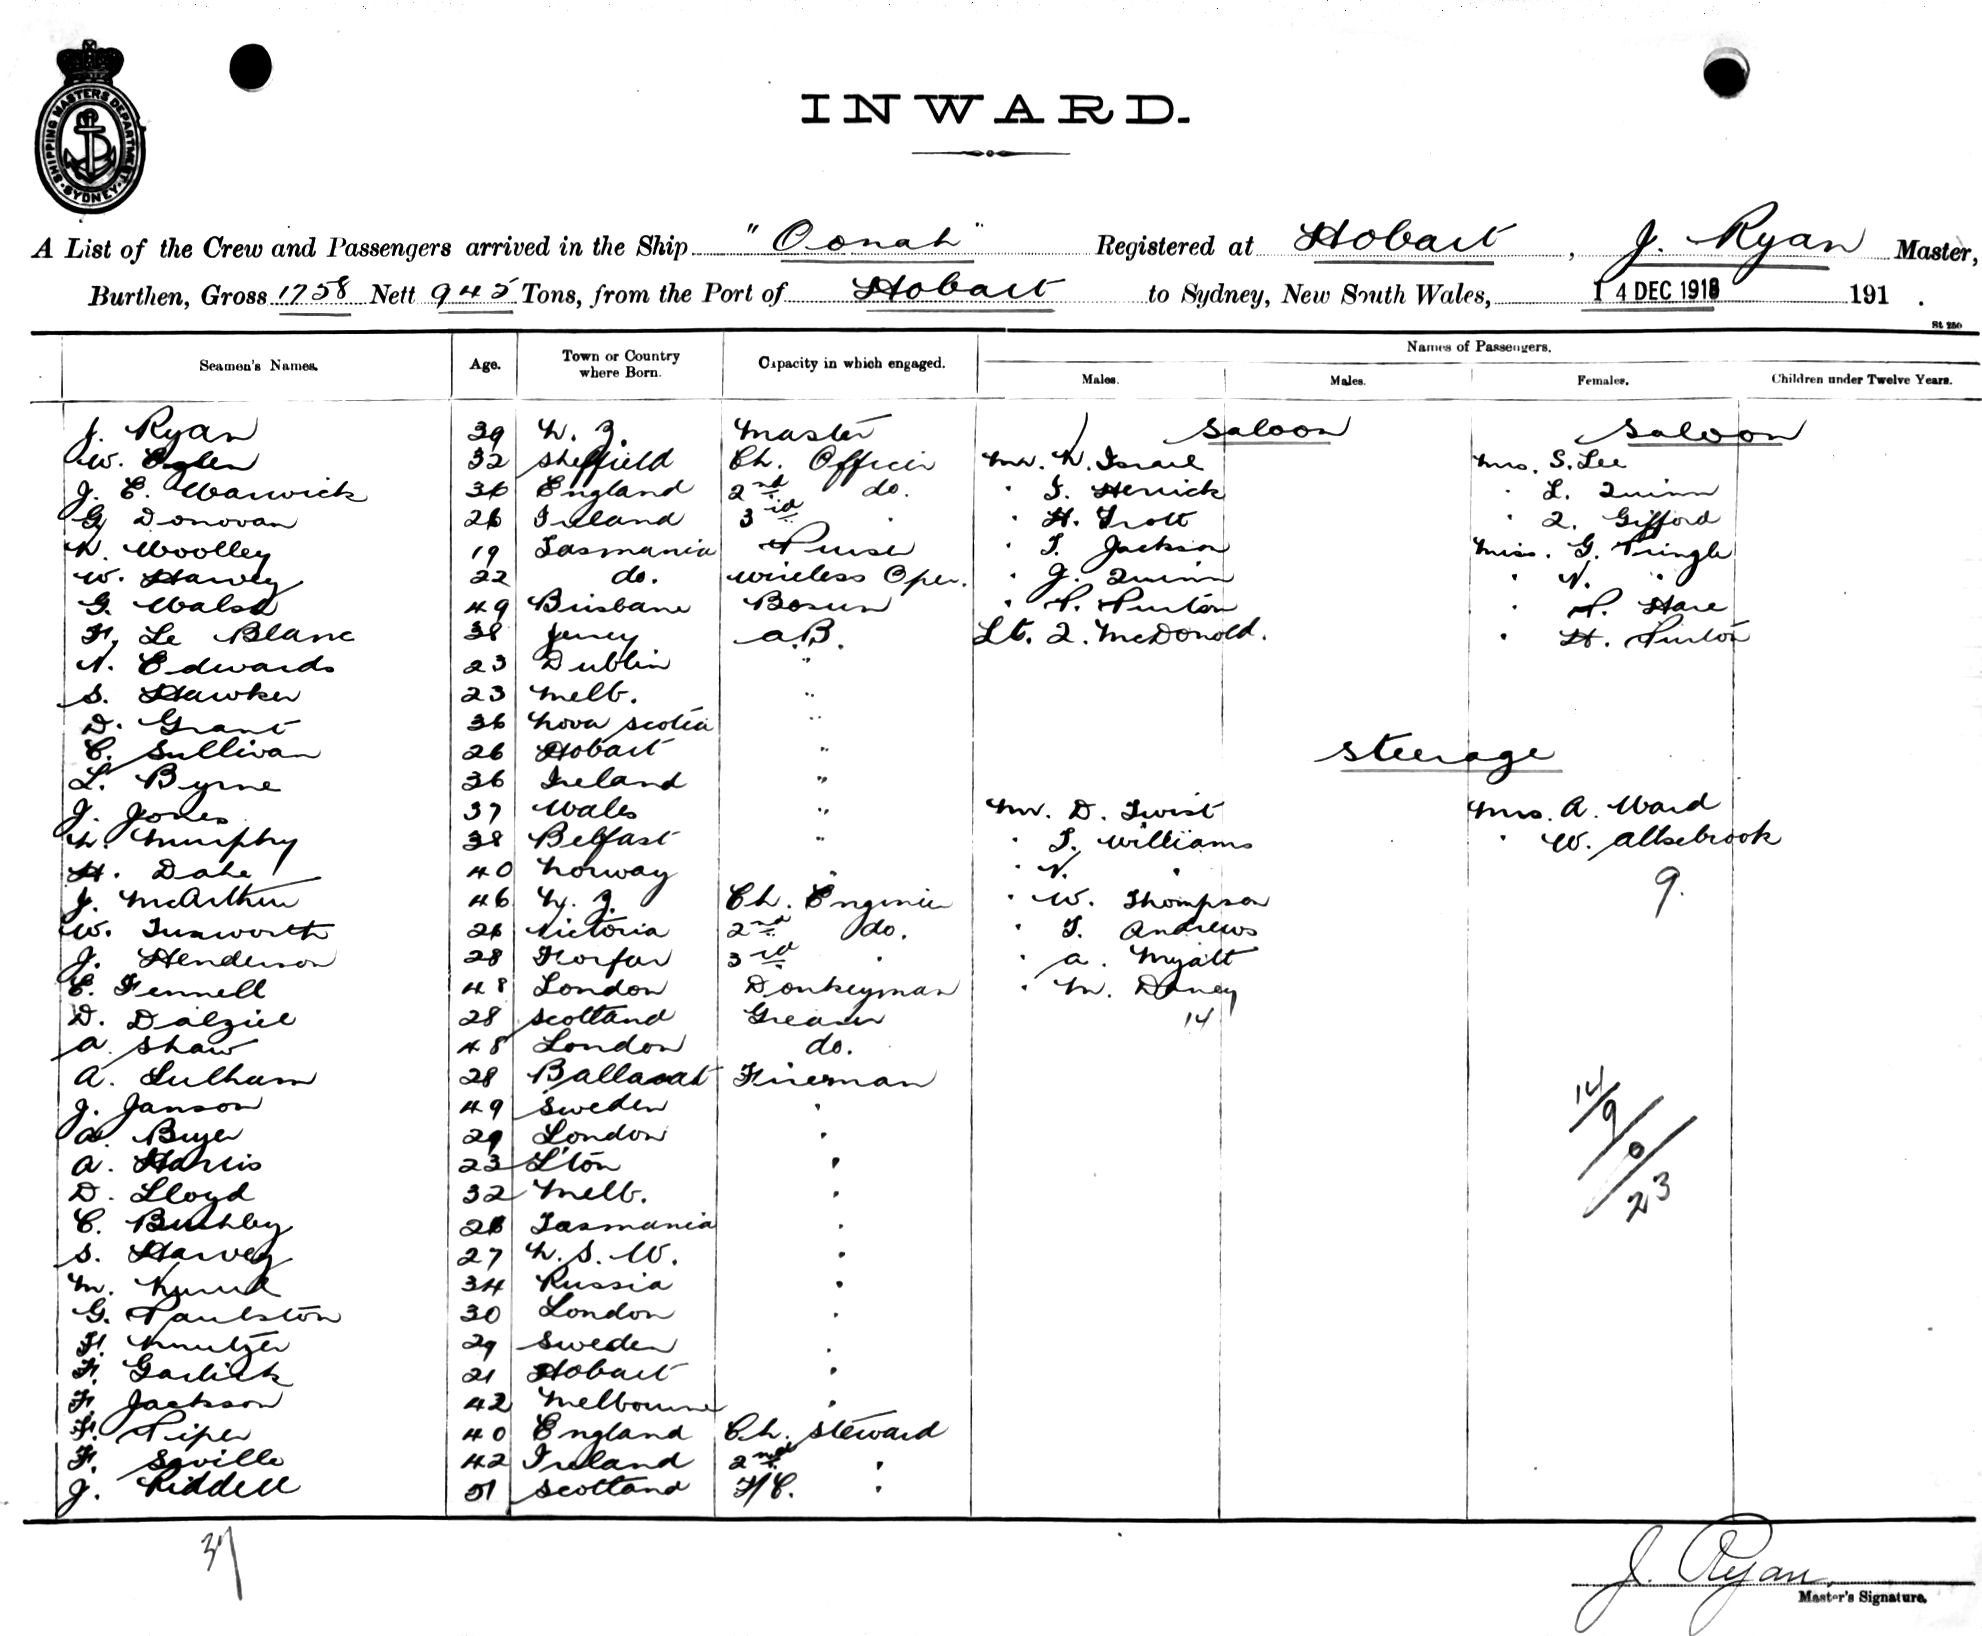 SHIPPING MASTERS DEPARTMENT · SYDNEY ·
INWARD.
A List of the Crew and Passengers arrived in the Ship "Oonah" Registered at Hobart, J. Ryan Master,
Burthen, Gross 1758 Nett 945 Tons, from the Port of Hobart to Sydney, New South Wales, 14 DEC 1918 191 .
St. 250
Seamen's Names. Age. Town or Country where Born. Capacity in which engaged. Names of Passengers.
Males. Males. Females. Children under Twelve Years.
J. Ryan 39 N. Z. Master Saloon Saloon
W. 32 Sheffield Ch. Officer Mr. N. Israel Mrs. S. Lee
J. E. Warwick 36 England 2nd do. " Herrick " L. Quinn
G. Donovan 26 Ireland 3rd " " H. Trott " Q. Gifford
N. Woolley 19 Tasmania Purser " T. Jackson Miss. G. Pringle
W. Harvey 22 do. Wireless Oper. " J. Quinn " N. "
G. Walsh 49 Brisbane Bosun " P. Purton " P. Hare
F. Le Blanc 38 Jersey A.B. Lt. Q. McDonald. " H. Purton
N. Edwards 23 Dublin "
S. Hawker 23 Melb. "
D. Grant 36 Nova Scotia "
C. Sullivan 26 Hobart " Steerage
L. Byrne 36 Ireland "
J. Jones 37 Wales " Mr. D. Twist Mrs. A. Ward
N. Murphy 38 Belfast " " T. Williams " W. Allsebrook
H. Dahl 40 Norway " " N. " 9.
J. McArthur 46 N. Z. Ch. Engineer " W. Thompson
W. Tunworth 26 Victoria 2nd do. " T. Andrews
J. Henderson 28 Forfar 3rd " " A. Myatt
C. Fennell 48 London Donkeyman " M. Daney
D. Dalziel 28 Scotland Greaser 14
A. Shaw 48 London do.
A. Lulham 28 Ballarat Fireman
J. Janson 49 Sweden "
A. Buyer 29 London "
A. Harris 23 L'ton "
D. Lloyd 32 Melb. "
C. Bushby 28 Tasmania "
S. Harvey 27 N. S. W. "
M. 34 Russia "
G. Paulston 30 London "
F. Knutzer 29 Sweden "
F. Garlick 21 Hobart "
F. Jackson 42 Melbourne "
F. Piper 40 England Ch. Steward
F. Saville 42 Ireland 2nd "
J. Riddell 51 Scotland F/C. "
14/9/0/23
37
J. Ryan.
Master's Signature.